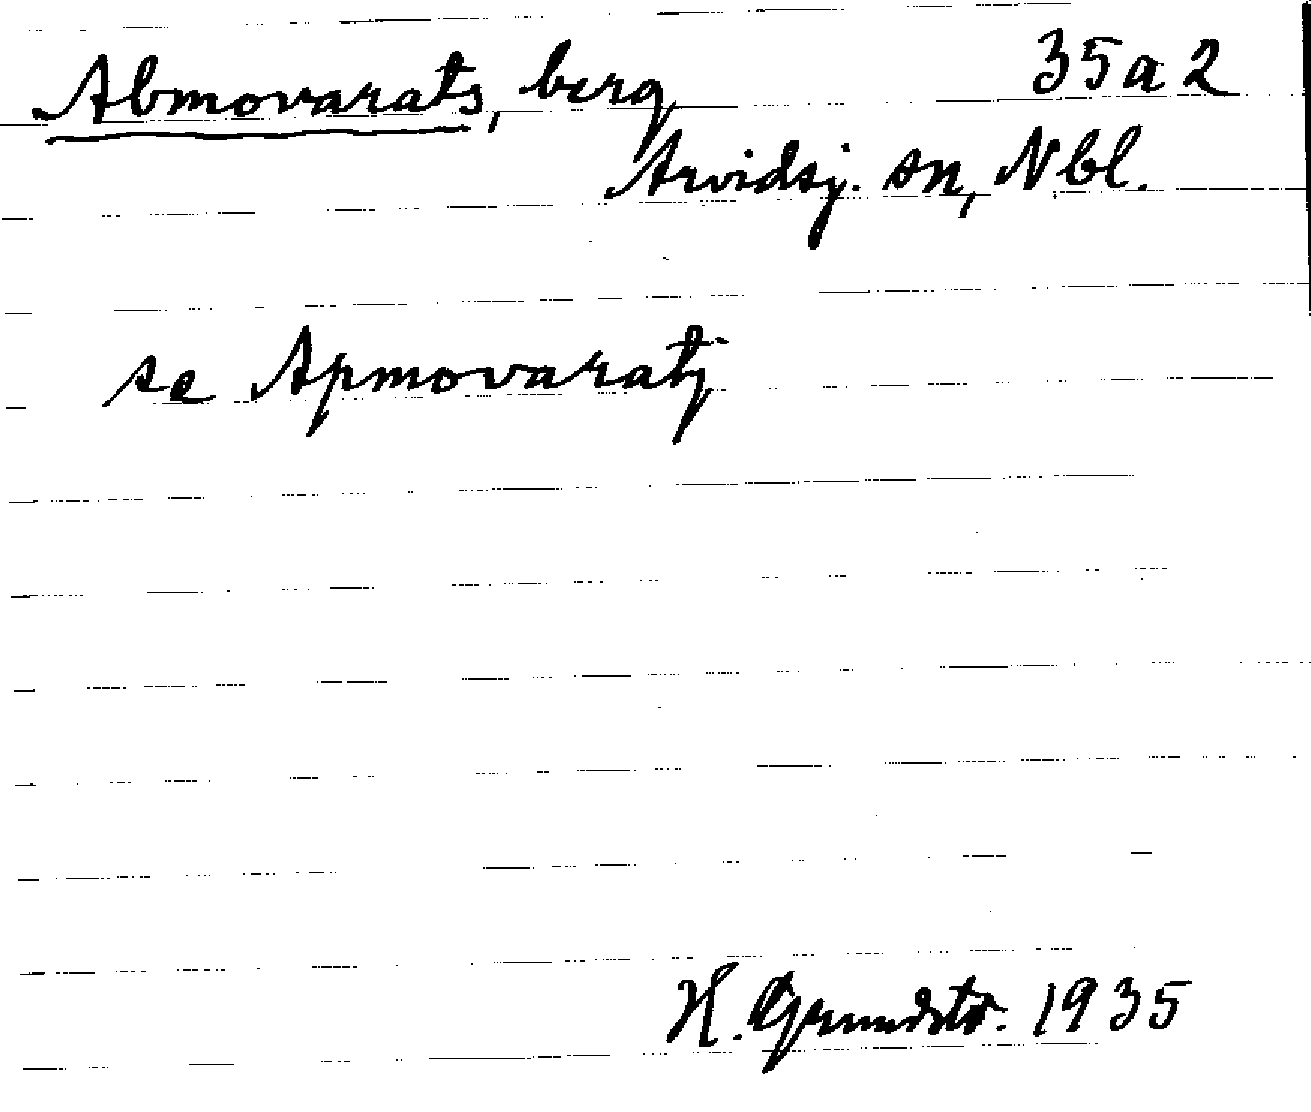 Abmovarats, berg 35a2
Arvidsj. sn, Nbl.
se Apmovaratj
H. Grundstr. 1935